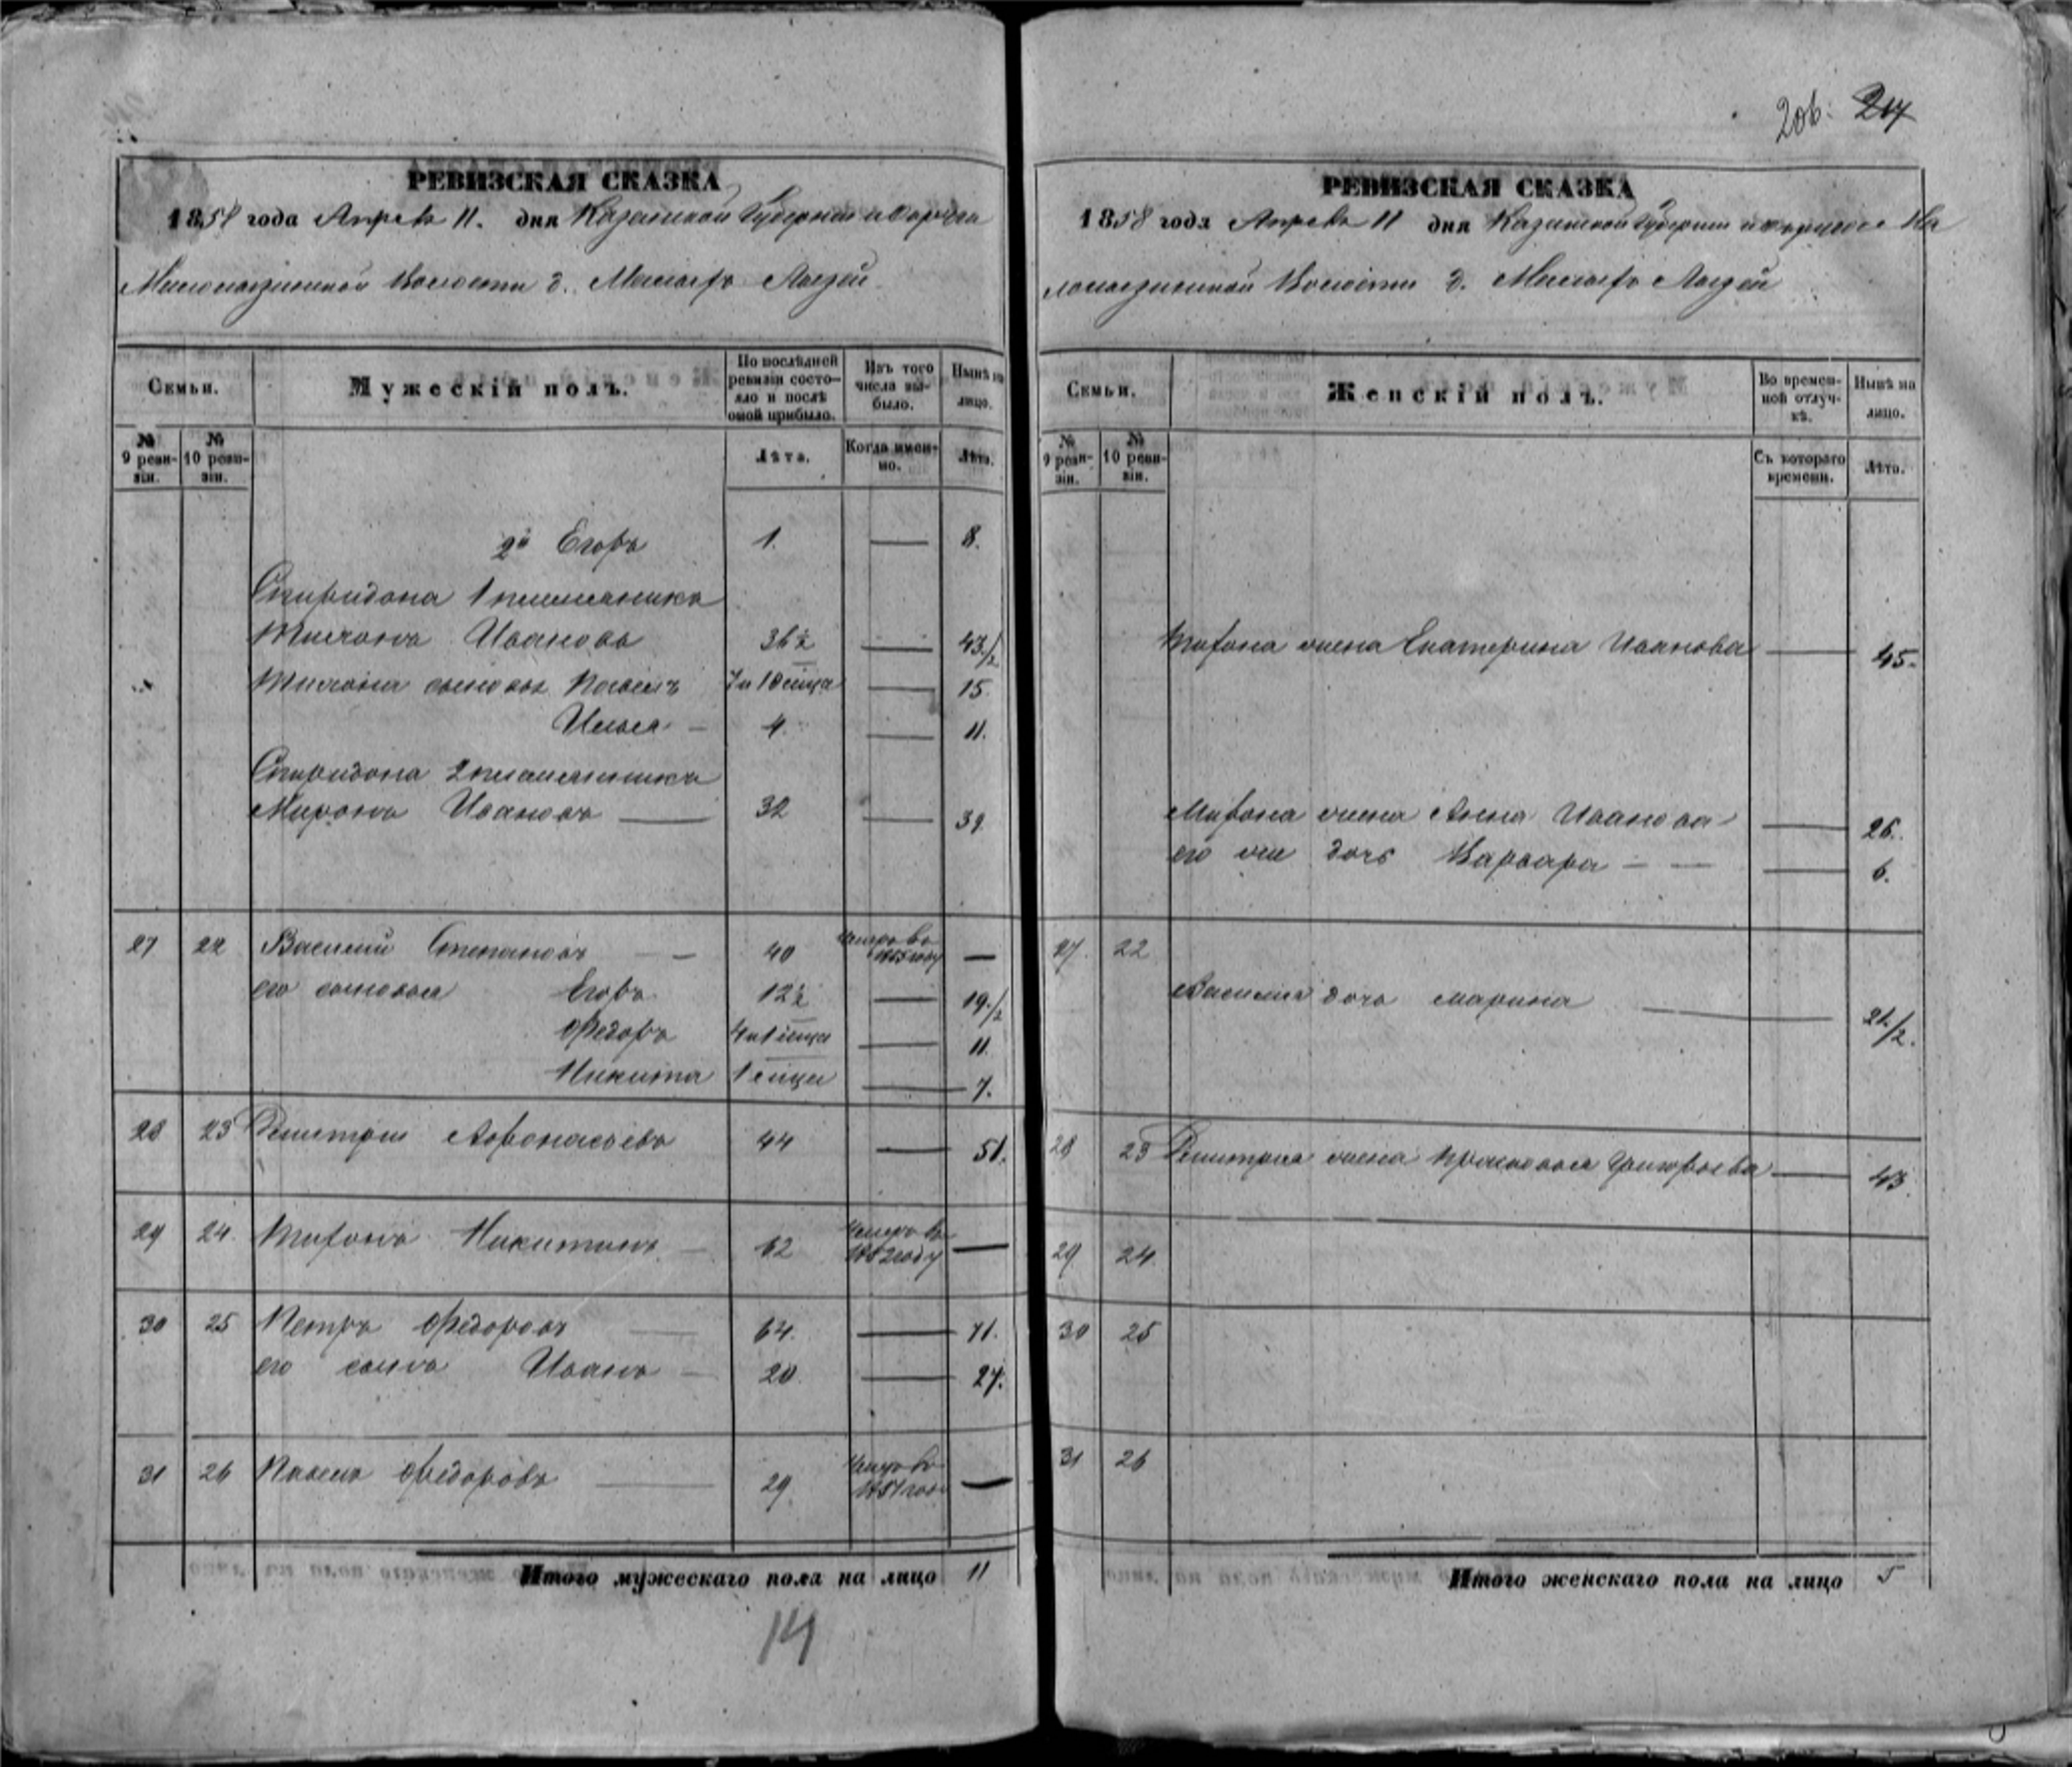 206. 217
РЕВИЗСКАЯ СКАЗКА
1858 года Апреля 11. дня Казанской Губернии и Округа
волости д. Малыхъ
Семьи.
Мужескій полъ.
По послѣдней ревизіи состояло и послѣ оной прибыло.
Изъ того числа выбыло.
Нынѣ на лицо.
№ 9 ревизіи.
№ 10 ревизіи.
Лѣта.
Когда именно.
Лѣта.
2й Егоръ 1. — 8.
Спиридона 1 племянникъ
Иванов 36½ — 43½
сыновья 7 и 10 — 15.
Илья — 4. — 11.
Спиридона 2 племянникъ
Миронъ Ивановъ — 32 — 39
27 22 Василий Степановъ — 40 умеръ въ 1855 году —
его сыновья Егоръ 12½ — 19½
Федоръ 4 и 1 — 11.
Никита 1 — 7.
28 23 Дмитрий Афонасьевъ 44 — 51.
29 24. Никитинъ — 62 умеръ въ 1852 году —
30 25 Петръ Федоровъ — 64. — 71.
его сынъ Иванъ — 20. — 27.
31 26 Павелъ Федоровъ — 29 умеръ въ —
Итого мужескаго пола на лицо 11
14
РЕВИЗСКАЯ СКАЗКА
1858 года Апреля 11 дня Казанской Губернии и округа
волости д. Малыхъ
Семьи.
Женскій полъ.
Во временной отлучкѣ.
Нынѣ на лицо.
№ 9 ревизіи.
№ 10 ревизіи.
Съ котораго времени.
Лѣта.
жена Екатерина Иванова — 45.
Мирона жена Анна Иванова — 26.
его же дочь Варвара — — 6.
27. 22
Василия дочь Марина — 21½.
28 23 Дмитрия жена Прасковья Григорьева — 43.
29 24.
30 25
31 26
Итого женскаго пола на лицо 5